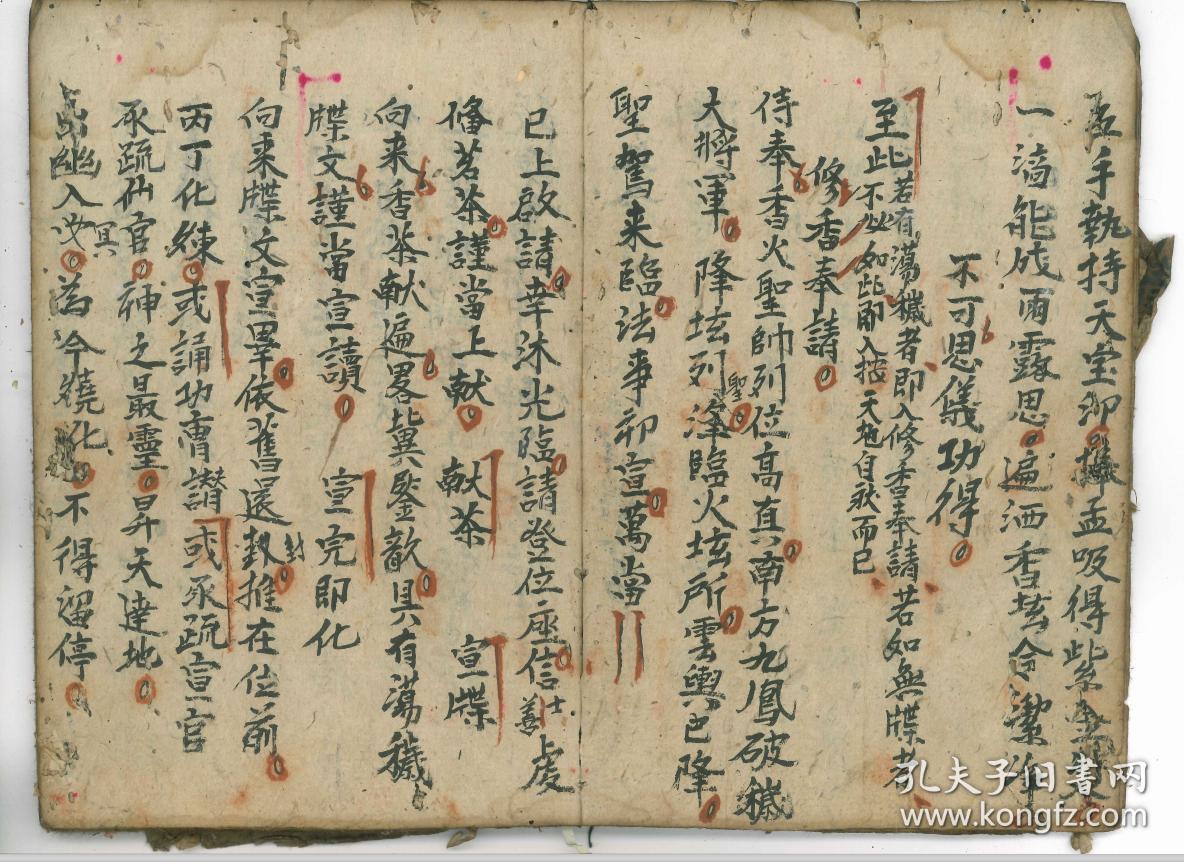 手執持天宝印攝盂吸得紫金
一滴能成雨露思遍洒香坛令潔净
不可思儀功得
至此若有蕩穢者即入修香奉請若如無牒者
不必如此即入招天地自秋而已
修香奉請
侍奉香火聖帥列位高真南方九鳳破穢
大將軍降坛列聖逢臨火坛所雲輿已降
聖駕来臨法事卯宣萬當
已上啟請幸沐光臨請登位座信士善上虔
俻茗茶謹當上献 献茶 宣牒
向来香茶献遍畧比異鑒歆具有蕩穢
牒文謹當宣讀 宣完即化
向来牒文宣畢依舊還封推在位前
丙丁化練或誦功曹讚或承疏宣官
承疏仙官神之最靈昇天達地
出幽入冥為今燒化不得留停
孔夫子旧書网
www.kongfz.com